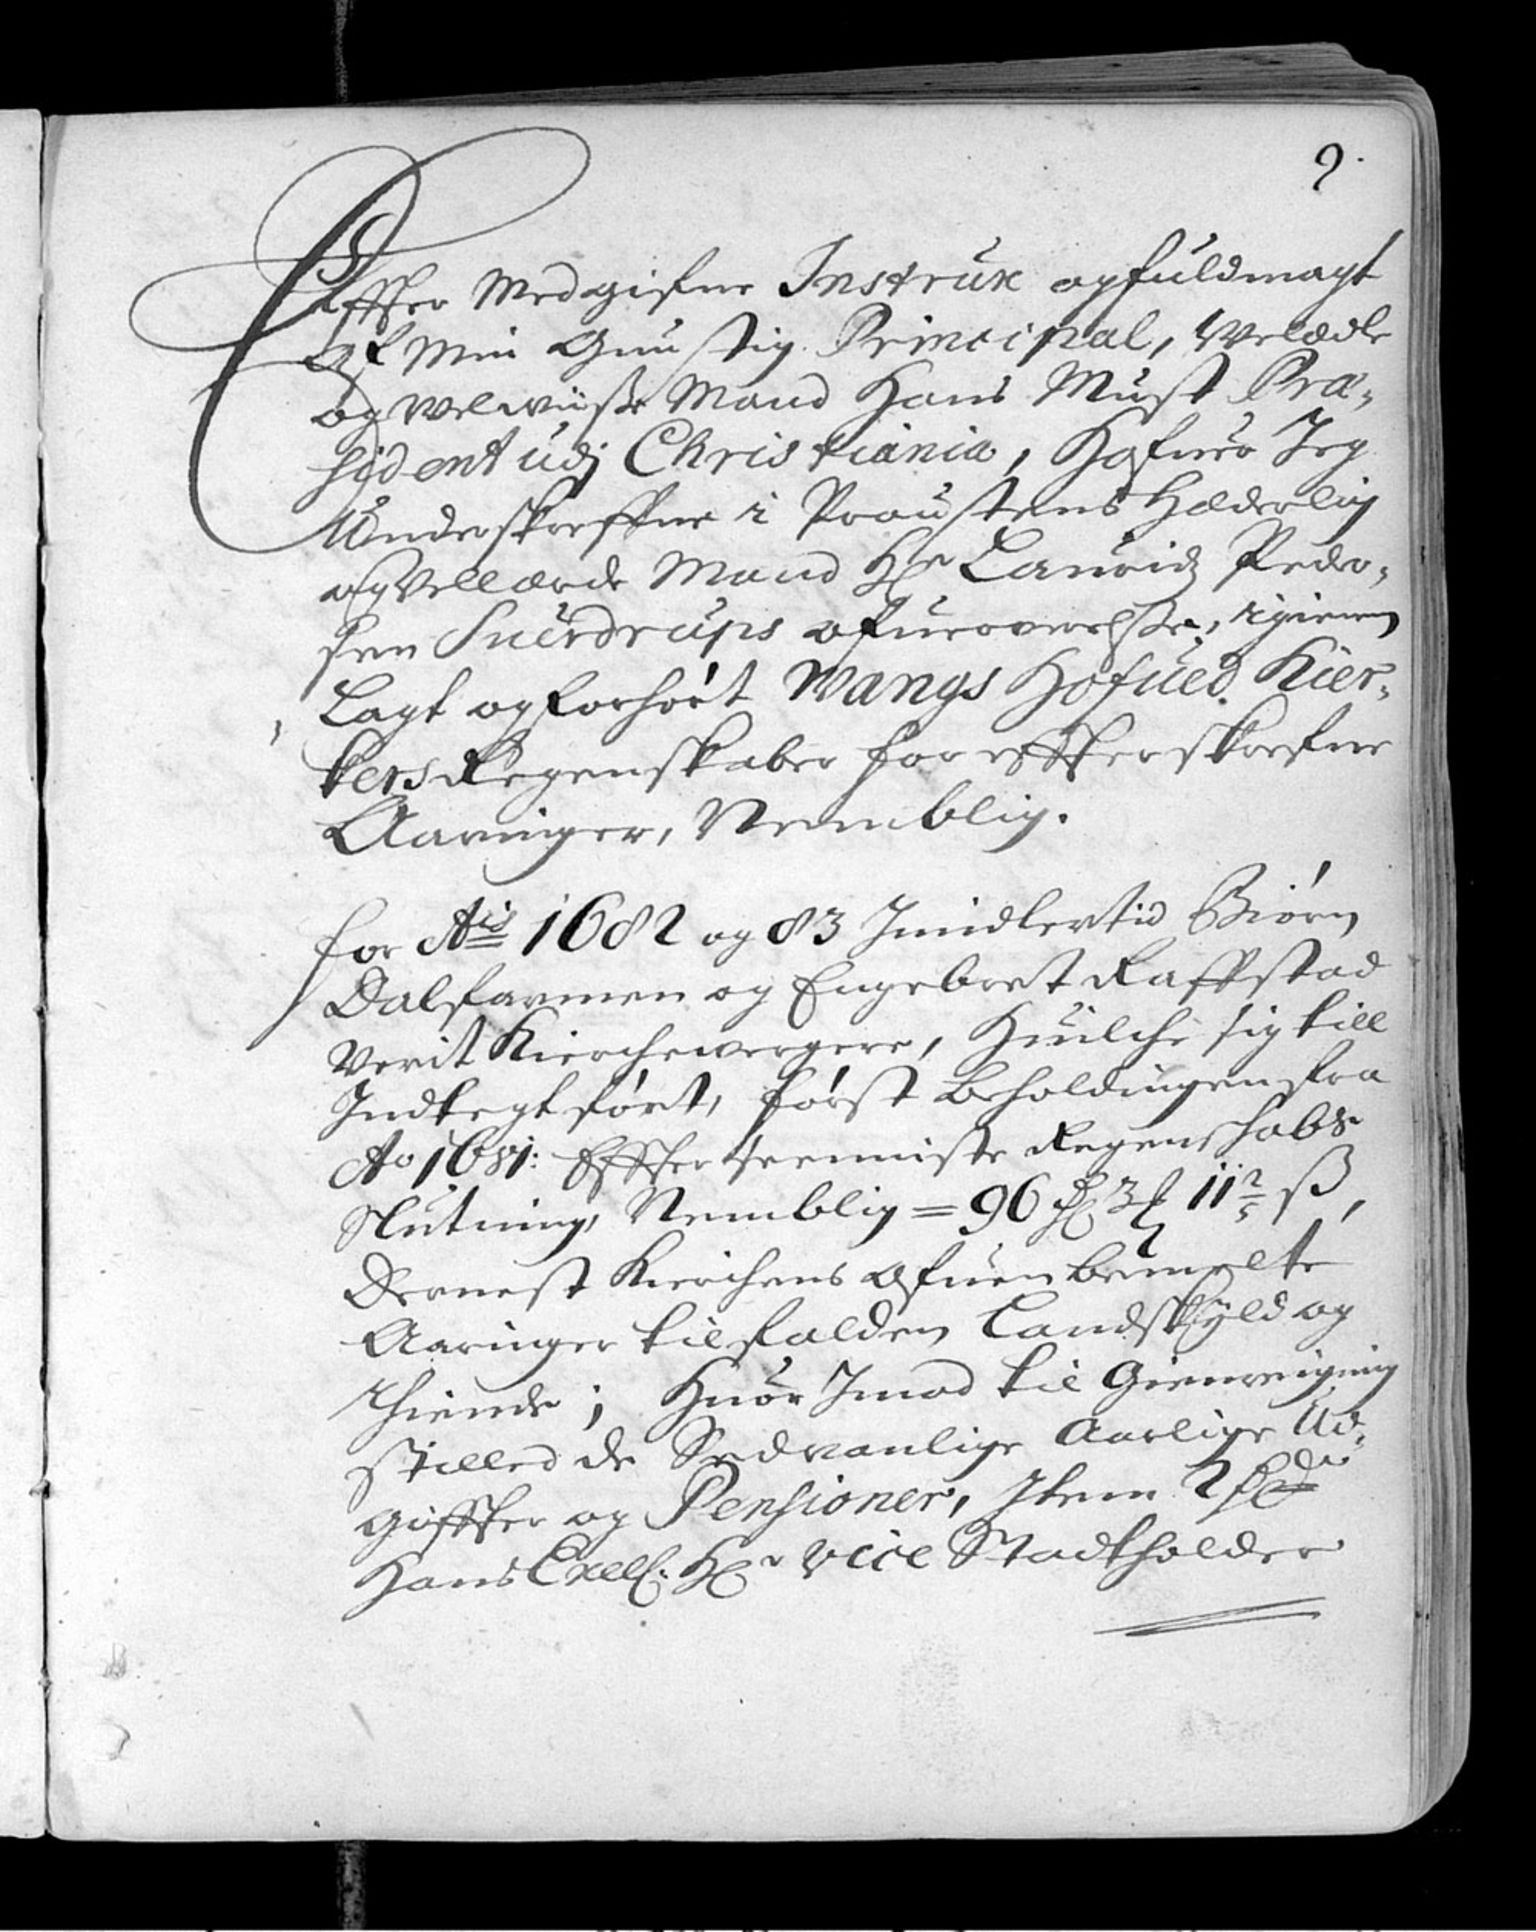 9.
Effter Medgifne Instrux og fuldmagt
Af Min Gunstig Principal, Welædle
og Welwiisse Mand Hans Must Præ,
sident udj Christiania, Hafuer Jeg
Underskreffne i Proustens Hæderlig
og Vellærde Mand Hr Lauridz Peder,
sen Suerdrups ofueroverelsse, igienem
Lagt og forhört Wangs Hofued Kier,
kers Regenskaber for effterskrefne
Aaringer, Nemblig.
for Ais 1682 og 83 Imidlertid Biörn
Dalfarmen og Engebret Raffstad
Verit Kierchewergere, Huilche sig till
Indtegt fört, först beholdingen fra
Ao 1681: Effter seeniste Regenschabs
Slutning, Nemblig = 96 Rd 3 11 2/5 ß,
Dernest Kirchens Ofuenbemelte
Aaringer tilfalden Landskyld og
Thiende; Huor Imod til Gienreigning
stilled de Sedvanlige Aarlige Ud,
giffter og Pensioner, Item 2 Rdr
Hans Excell. Hr Vice Stadtholder